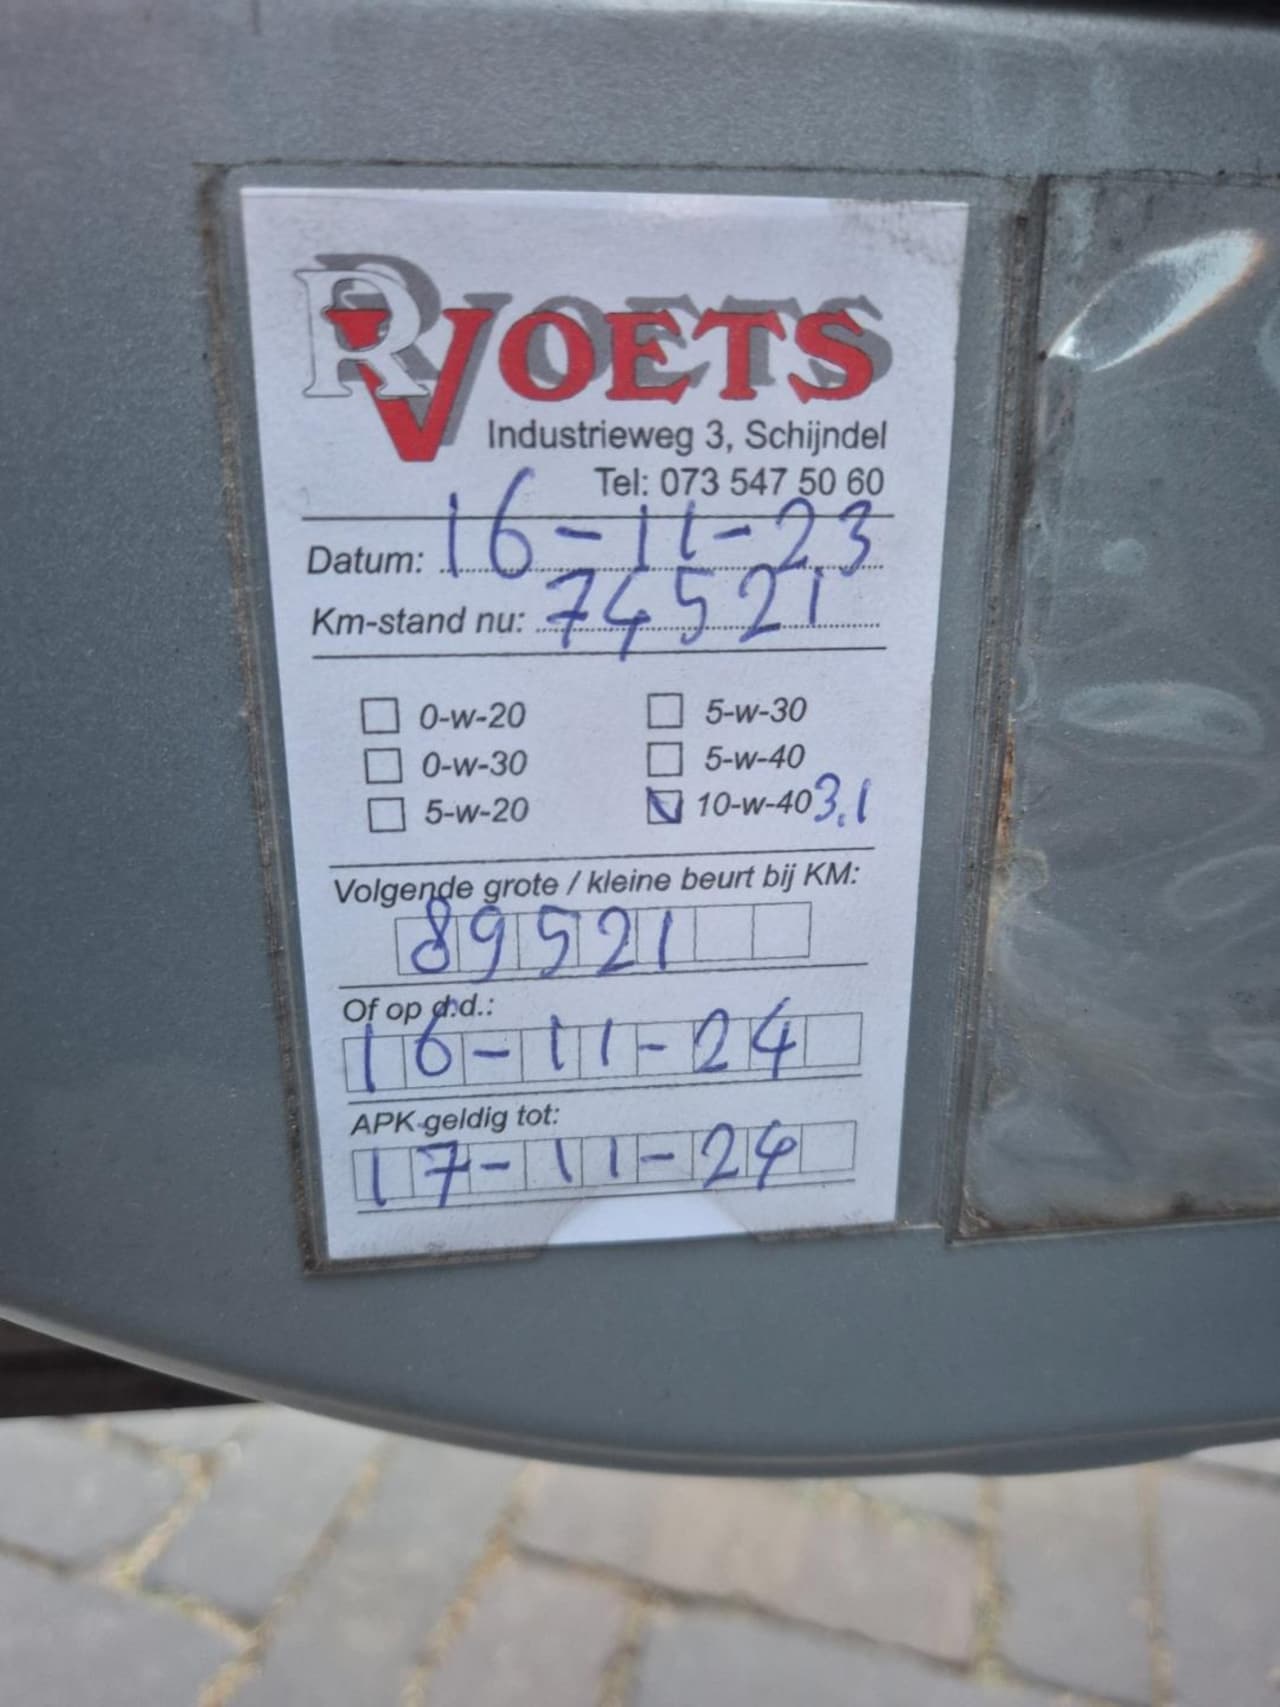 RVOETS
Industrieweg 3, Schijndel
Tel: 073 547 50 60
Datum: 16-11-23
Km-stand nu: 74521
0-w-20 5-w-30
0-w-30 5-w-40
5-w-20 10-w-40 3.1
Volgende grote / kleine beurt bij KM:
89521
Of op d.d.:
16-11-24
APK geldig tot:
17-11-24